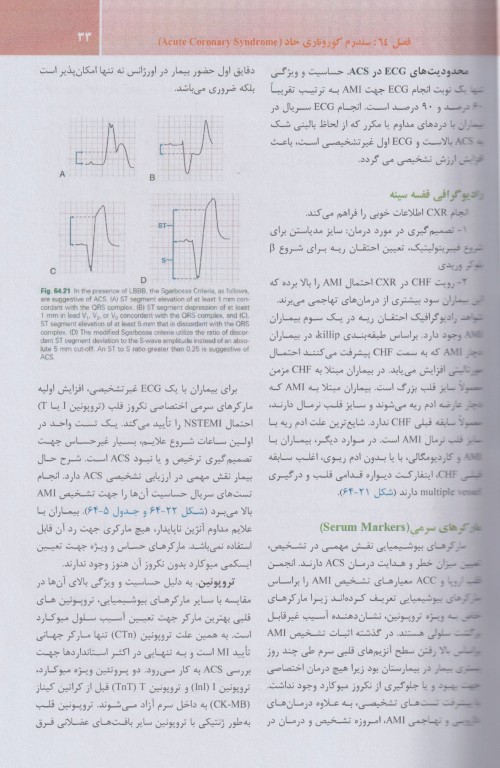 فصل ٦٤: سندرم کوروناری حاد (Acute Coronary Syndrome)
۳۳
محدودیت‌های ECG در ACS. حساسیت و ویژگی
یک نوبت انجام ECG جهت AMI به ترتیب تقریباً
درصد و ۹۰ درصد است. انجام ECG سریال در
بیماران با دردهای مداوم یا مکرر که از لحاظ بالینی شک
ACS بالاست و ECG اول غیرتشخیصی است، باعث
افزایش ارزش تشخیصی می گردد.
رادیوگرافی قفسه سینه
انجام CXR اطلاعات خوبی را فراهم می‌کند.
۱- تصمیم‌گیری در مورد درمان: سایز مدیاستن برای
شروع فیبرینولیتیک، تعیین احتقان ریه برای شروع β
بلوکر وریدی
۲- رویت CHF در CXR احتمال AMI را بالا برده که
این بیماران سود بیشتری از درمان‌های تهاجمی می‌برند.
شواهد رادیوگرافیک احتقان ریه در یک سوم بیماران
AMI وجود دارد. براساس طبقه‌بندی killip، در بیماران
دچار AMI که به سمت CHF پیشرفت می‌کنند احتمال
مورتالیتی افزایش می‌یابد. در بیماران مبتلا به CHF مزمن
معمولاً سایز قلب بزرگ است. بیماران مبتلا به AMI که
دچار عارضه ادم ریه می‌شوند و سایز قلب نرمال دارند،
معمولاً سابقه قبلی CHF ندارد. شایع‌ترین علت ادم ریه با
سایز قلب نرمال AMI است. در موارد دیگر، بیماران با
AMI و کاردیومگالی، با یا بدون ادم ریوی، اغلب سابقه
قبلی CHF، اینفارکت دیواره قدامی قلب و درگیری
multiple vessel دارند (شکل ۲۱-۶۴).
مارکرهای سرمی (Serum Markers)
مارکرهای بیوشیمیایی نقش مهمی در تشخیص،
تعیین میزان خطر و هدایت درمان ACS دارند. انجمن
قلب اروپا و ACC معیارهای تشخیص AMI را براساس
مارکرهای بیوشیمیایی تعریف کرده‌اند زیرا مارکرهای
خاص به ویژه تروپونین، نشان‌دهنده آسیب غیرقابل
برگشت سلولی هستند. در گذشته اثبات تشخیص AMI
براساس بالا رفتن سطح آنزیم‌های قلبی سرم طی چند روز
بستری بیمار در بیمارستان بود زیرا هیچ درمان اختصاصی
جهت بهبود و یا جلوگیری از نکروز میوکارد وجود نداشت.
با پیشرفت تست‌های تشخیصی، به علاوه درمان‌های
دارویی و تهاجمی AMI، امروزه تشخیص و درمان در
دقایق اول حضور بیمار در اورژانس نه تنها امکان‌پذیر است
بلکه ضروری می‌باشد.
A
B
C
D
ST
S
Fig. 64.21 In the presence of LBBB, the Sgarbossa Criteria, as follows,
are suggestive of ACS. (A) ST segment elevation of at least 1 mm con-
cordant with the QRS complex. (B) ST segment depression of at least
1 mm in lead V₁, V₂, or V₃ concordant with the QRS complex, and (C),
ST segment elevation of at least 5 mm that is discordant with the QRS
complex. (D) The modified Sgarbossa criteria utilize the ratio of discor-
dant ST segment deviation to the S-wave amplitude instead of an abso-
lute 5 mm cut-off. An ST to S ratio greater than 0.25 is suggestive of
ACS.
برای بیماران با یک ECG غیرتشخیصی، افزایش اولیه
مارکرهای سرمی اختصاصی نکروز قلب (تروپونین I یا T)
احتمال NSTEMI را تأیید می‌کند. یک تست واحد در
اولین ساعات شروع علایم، بسیار غیرحساس جهت
تصمیم گیری ترخیص و یا نبود ACS است. شرح حال
بیمار نقش مهمی در ارزیابی تشخیصی ACS دارد. انجام
تست‌های سریال حساسیت آن‌ها را جهت تشخیص AMI
بالا می‌برد (شکل ۲۲-۶۴ و جدول ۵-۶۴). بیماران با
علایم مداوم آنژین ناپایدار، هیچ مارکری جهت رد آن قابل
استفاده نمی‌باشد. مارکرهای حساس و ویژه جهت تعیین
ایسکمی میوکارد بدون نکروز آن هنوز وجود ندارند.
تروپونین. به دلیل حساسیت و ویژگی بالای آن‌ها در
مقایسه با سایر مارکرهای بیوشیمیایی، تروپونین های
قلبی بهترین مارکر جهت تعیین آسیب سلول میوکارد
است. به همین علت تروپونین (CTn) تنها مارکر جهانی
تأیید MI است و به تنهایی در اکثر استانداردها جهت
بررسی ACS به کار می‌رود. دو پروتئین ویژه میوکارد،
تروپونین I (InI) و تروپونین T (TnT) قبل از کراتین کیناز
(CK-MB) به داخل سرم آزاد می‌شوند. تروپونین قلب
به‌طور ژنتیکی با تروپونین سایر بافت‌های عضلانی فرق